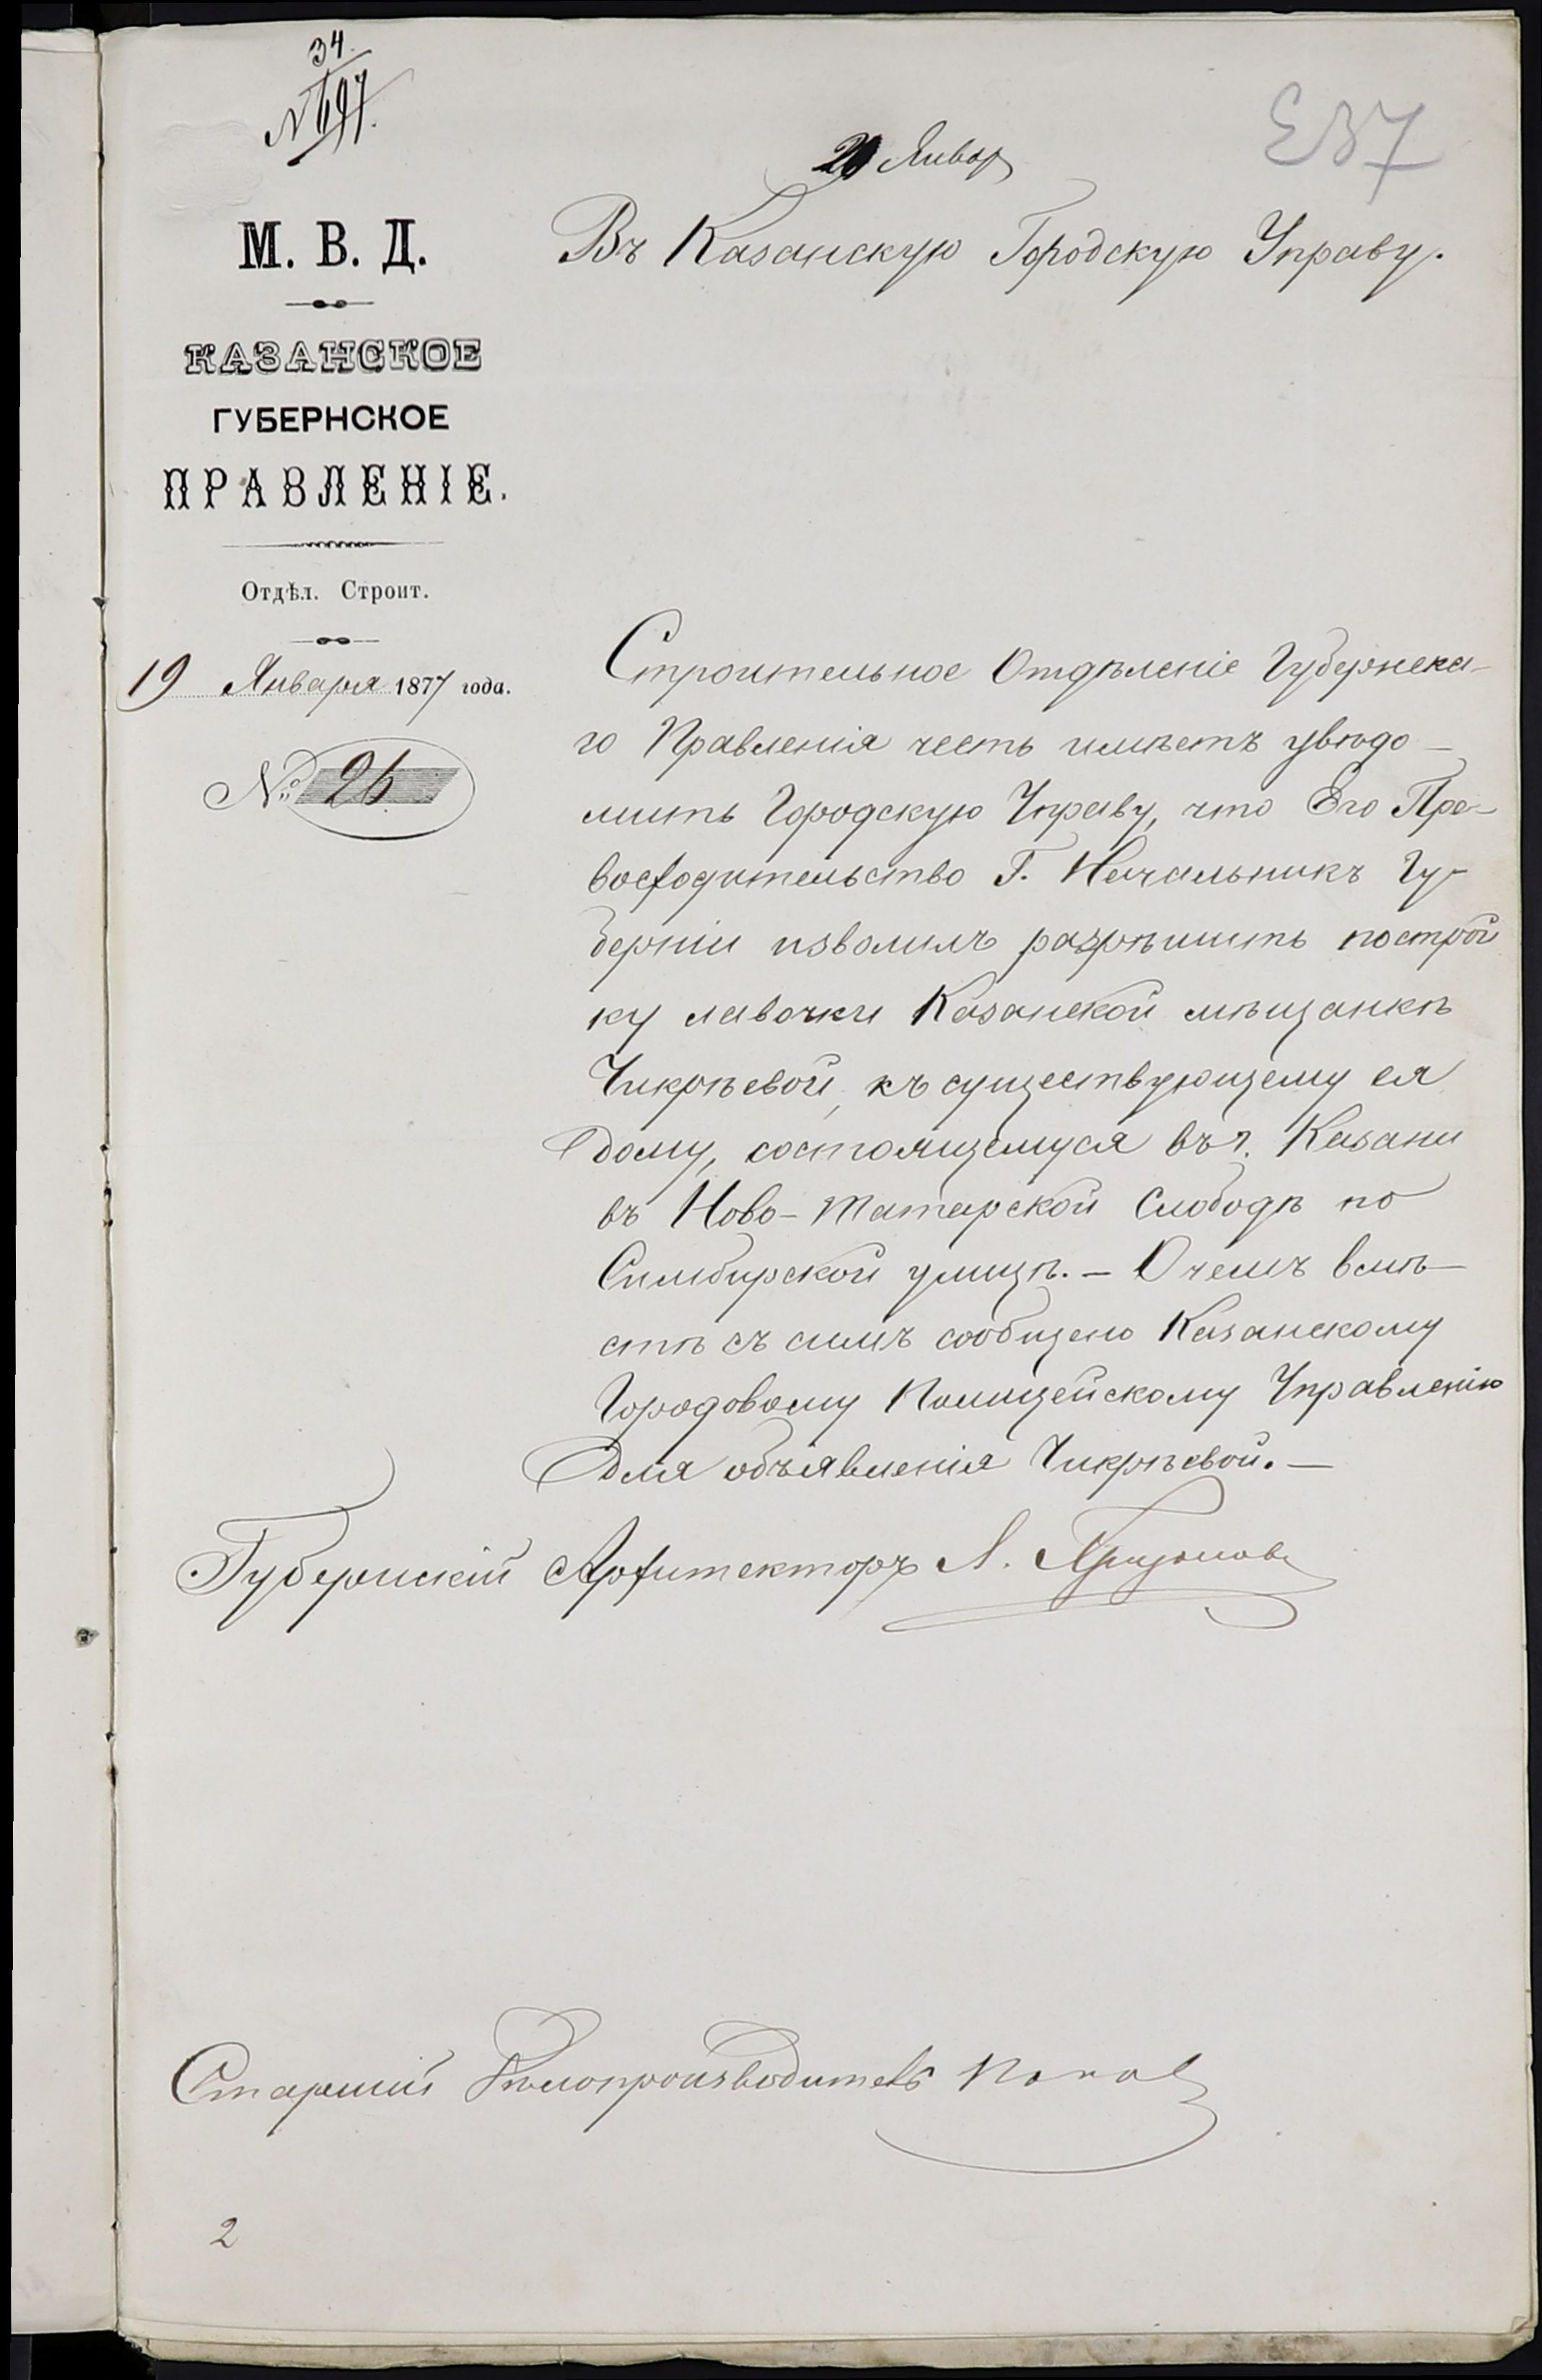 34.
№ 697.
20 Январ
Въ Казанскую Городскую Управу.
М. В. Д.
КАЗАНСКОЕ
ГУБЕРНСКОЕ
ПРАВЛЕНІЕ.
Отдѣл. Строит.
19 Января 1877 года.
№ 26
Строительное Отдѣленіе Губернска-
го Правленія честь имѣетъ увѣдо-
мить Городскую Управу, что Его Пре-
восходительство Г. Начальникъ Гу-
берніи изволилъ разрѣшить построй
ку лавочки Казанской мѣщанкѣ
Чикрѣевой, къ существующему ея
дому, состоящемуся въ г. Казани
въ Ново-Татарской Слободѣ по
Симбирской улицѣ. — О чемъ вмѣ-
стѣ съ симъ сообщено Казанскому
Городовому Полицейскому Управленію
для объявленія Чикрѣевой. —
Губернскій Архитекторъ
Старшій Дѣлопроизводитель Попов
2